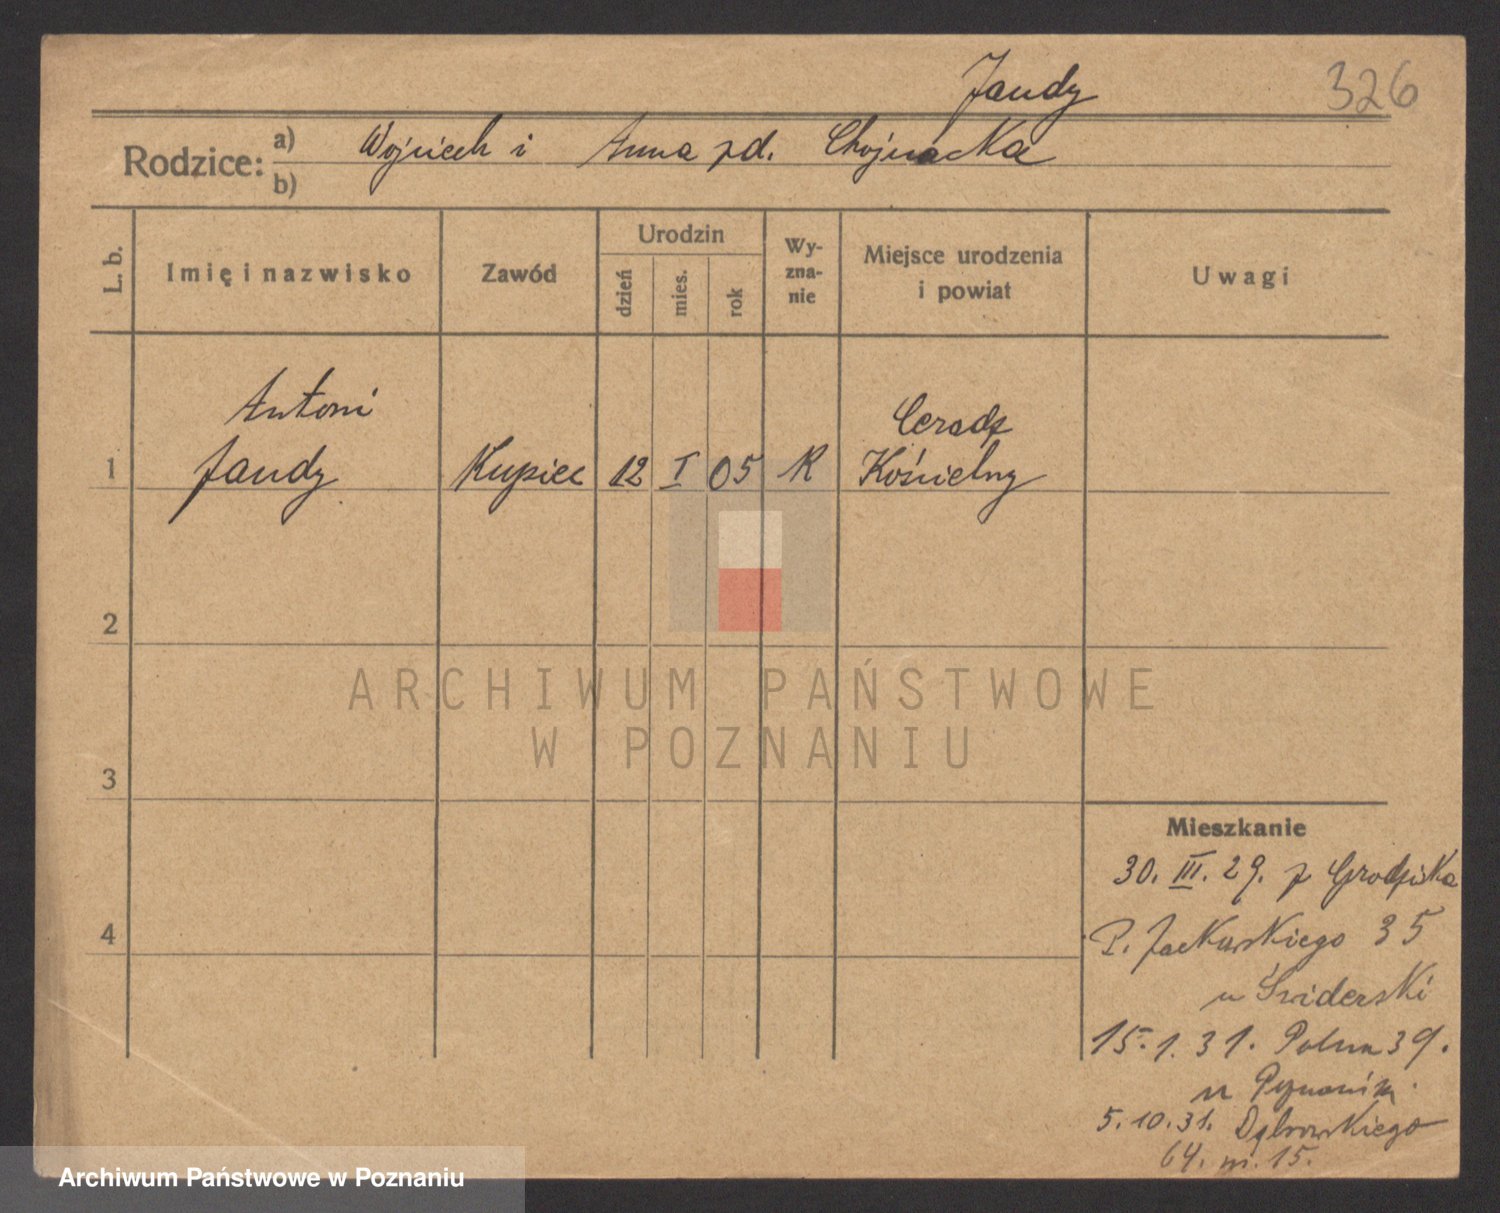 Jandy
326
Rodzice: a) Wojciech i Anna zd. Chojnacka
b)
L. b. Imię i nazwisko Zawód Urodzin dzień mies. rok Wy-zna-nie Miejsce urodzenia i powiat Uwagi
Antoni Ceradz
1 Jandy Kupiec 12 I 05 R Kościelny
2
ARCHIWUM PAŃSTWOWE
W POZNANIU
3
Mieszkanie
30. III. 29. z Grodziska
4
P. Jackowskiego 35
u Świderski
15.1.31. Polna 39.
u
5.10.31. Dąbrowskiego
64. m. 15.
Archiwum Państwowe w Poznaniu